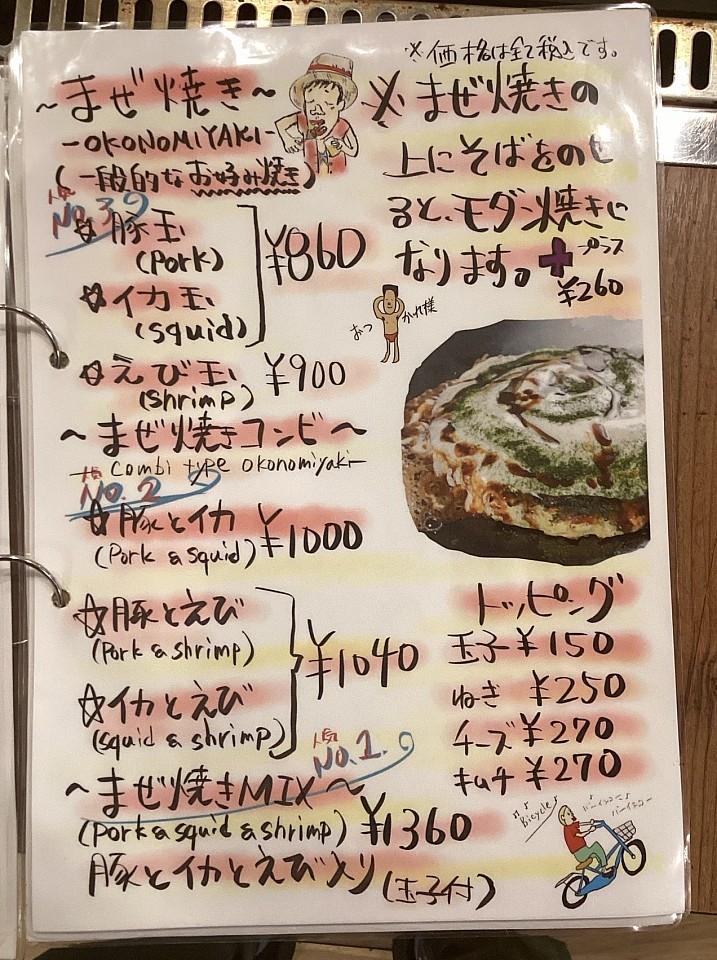 ※価格は全て税込です。
～まぜ焼き～
-OKONOMIYAKI-
(一般的なお好み焼き)
人気
No.3
☆豚玉
(Pork)
☆イカ玉
(squid)
¥860
☆えび玉 ¥900
(shrimp)
～まぜ焼きコンビ～
- combi type okonomiyaki-
人気
No.2
☆豚とイカ ¥1000
(Pork & squid)
☆豚とえび
(Pork & shrimp)
☆イカとえび
(squid & shrimp)
¥1040
人気
No.1.
～まぜ焼きMIX～
(Pork & squid & shrimp) ¥1360
豚とイカとえび入り(玉子付)
※まぜ焼きの
上にそばをのせ
ると、モダン焼きに
なります。+プラス
¥260
おつかれ様
トッピング
玉子 ¥150
ねぎ ¥250
チーズ ¥270
キムチ ¥270
Bicycle♪